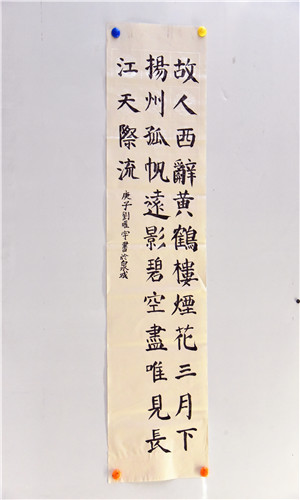 故人西辭黃鶴樓煙花三月下
揚州孤帆遠影碧空盡唯見長
江天際流
庚子劉唯宇書於泉城